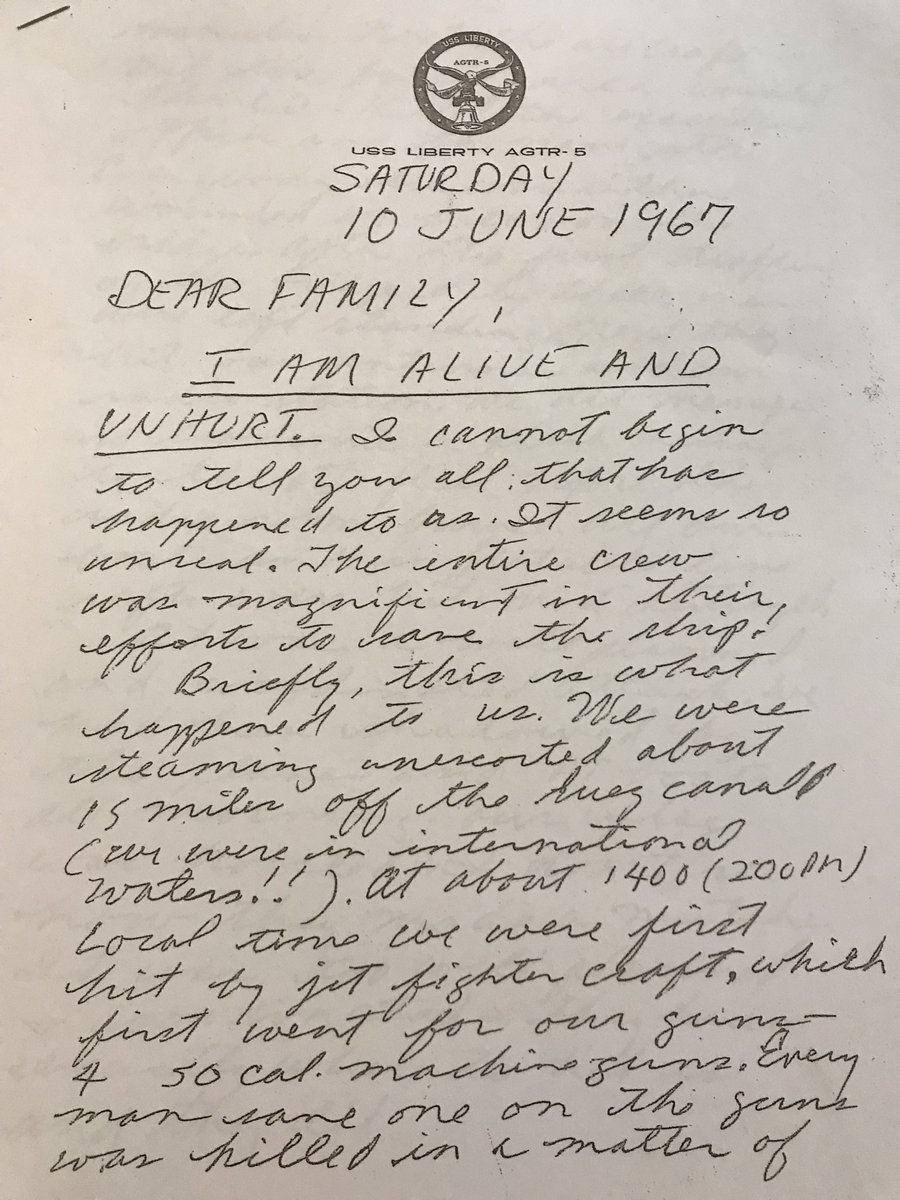 USS LIBERTY
AGTR-5
USS LIBERTY AGTR-5
SATURDAY
10 JUNE 1967
DEAR FAMILY,
I AM ALIVE AND
UNHURT. I cannot begin
to tell you all that has
happened to us. It seems so
unreal. The entire crew
was magnificent in their
efforts to save the ship!
Briefly, this is what
happened to us. We were
steaming unescorted about
15 miles off the Suez canal
(we were in international
waters!!). At about 1400 (200PM)
Local time we were first
hit by jet fighter craft, which
first went for our guns-
4 50 cal. machine guns. Every
man save one on the guns
was killed in a matter of